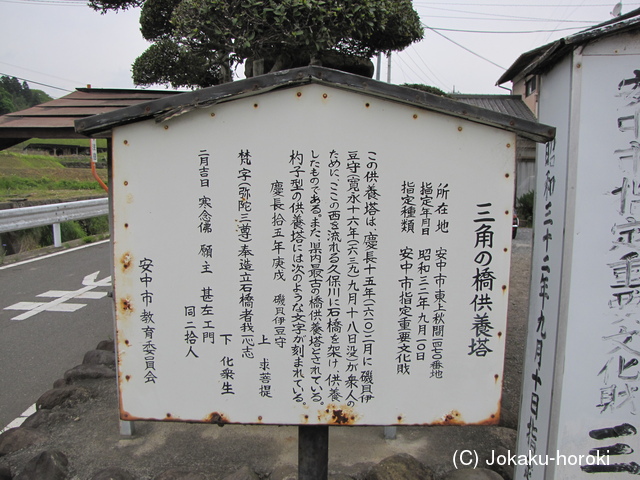 三角の橋供養塔
所在地　安中市東上秋間一四七〇番地
指定年月日　昭和三二年九月一〇日
指定種類　安中市指定重要文化財
この供養塔は、慶長十五年(一六一〇)二月に磯貝伊
豆守(寛永十六年(一六三九)九月十八日没)が衆人の
ために、ここの西を流れる久保川に石橋を架け、供養
したものである。また、県内最古の橋供養塔とされている。
杓子型の供養塔には次のような文字が刻まれている。
慶長拾五年庚戌　磯貝伊豆守
梵字(弥陀三尊)奉造立石橋者我一心志　上 求菩提
下 化衆生
二月吉日　寒念佛　願主　甚左エ門
同二拾人
安中市教育委員会
昭和三十二年九月十日指定
安中市指定重要文化財
三
(C) Jokaku-horoki